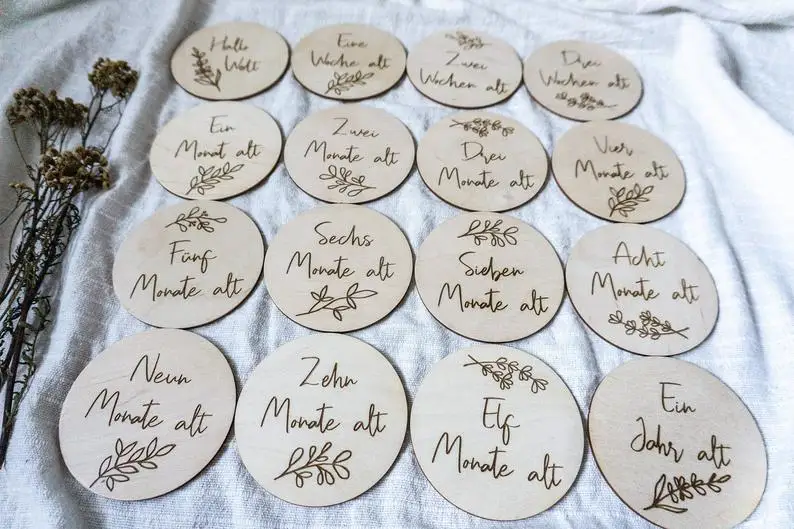 Hallo
Welt
Eine
Woche alt
Zwei
Wochen alt
Drei
Wochen alt
Ein
Monat alt
Zwei
Monate alt
Drei
Monate alt
Vier
Monate alt
Fünf
Monate alt
Sechs
Monate alt
Sieben
Monate alt
Acht
Monate alt
Neun
Monate alt
Zehn
Monate alt
Elf
Monate alt
Ein
Jahr alt